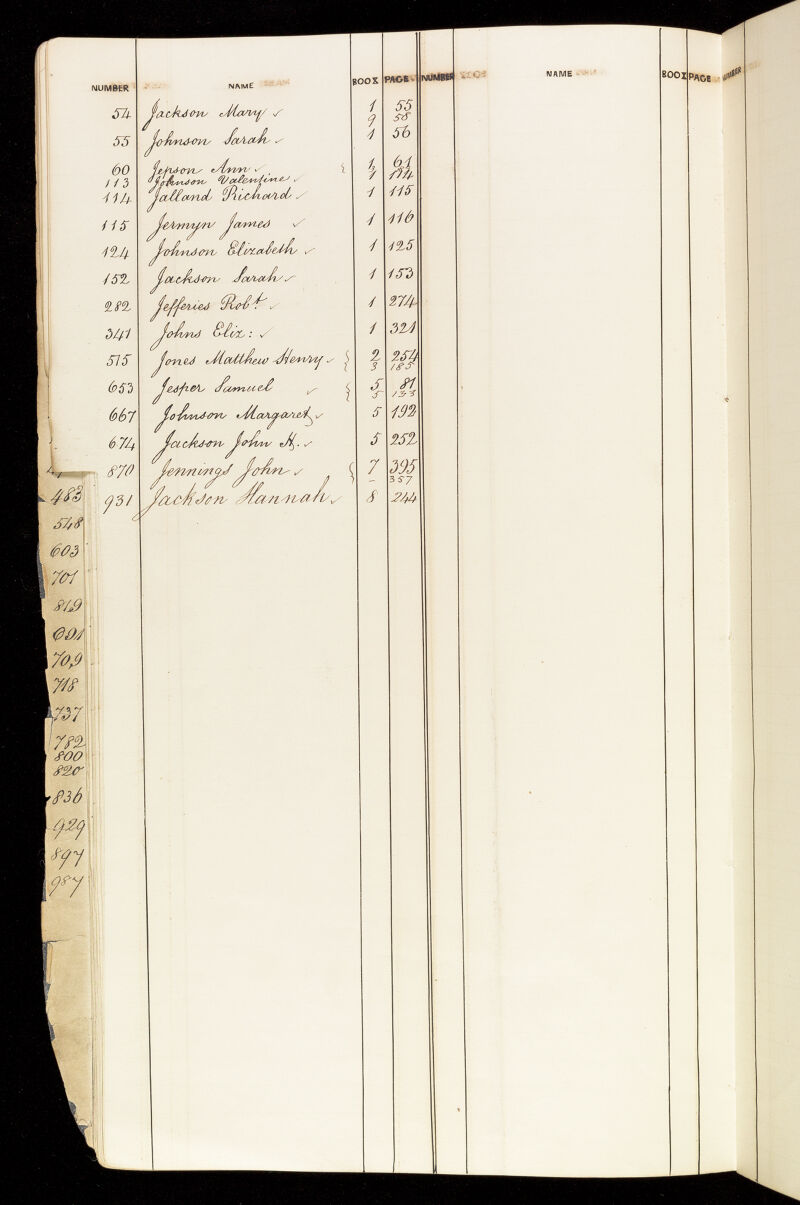 NUMBER NAME BOOK PAGE NUMBER NAME BOOK PAGE NUMBER
54 Jackson Mary ✓ 1 55
9 58
55 Johnson Sarah ✓ 1 56
60 Jepson Ann ✓ { 1 61
113 Johnson Valentine ✓ 1 114
114 Jalland Richard ✓ 1 115
115 Jermyn James ✓ 1 116
124 Johnson Elizabeth ✓ 1 125
152 Jackson Sarah ✓ 1 153
282 Jefferies Robt. ✓ 1 274
341 Johns Eliz: ✓ 1 321
515 Jones Matthew Henry ✓ { 2 254
3 185
653 Jesper Samuel ✓ { 5 81
5 133
667 Johnson Margaret ✓ 5 192
674 Jackson John H. ✓ 5 252
870 Jennings John ✓ { 7 395
– 357
931 Jackson Hannah ✓ 8 244
483
548
603
701
819
691
709
718
737
782
800
820
836
929
897
987